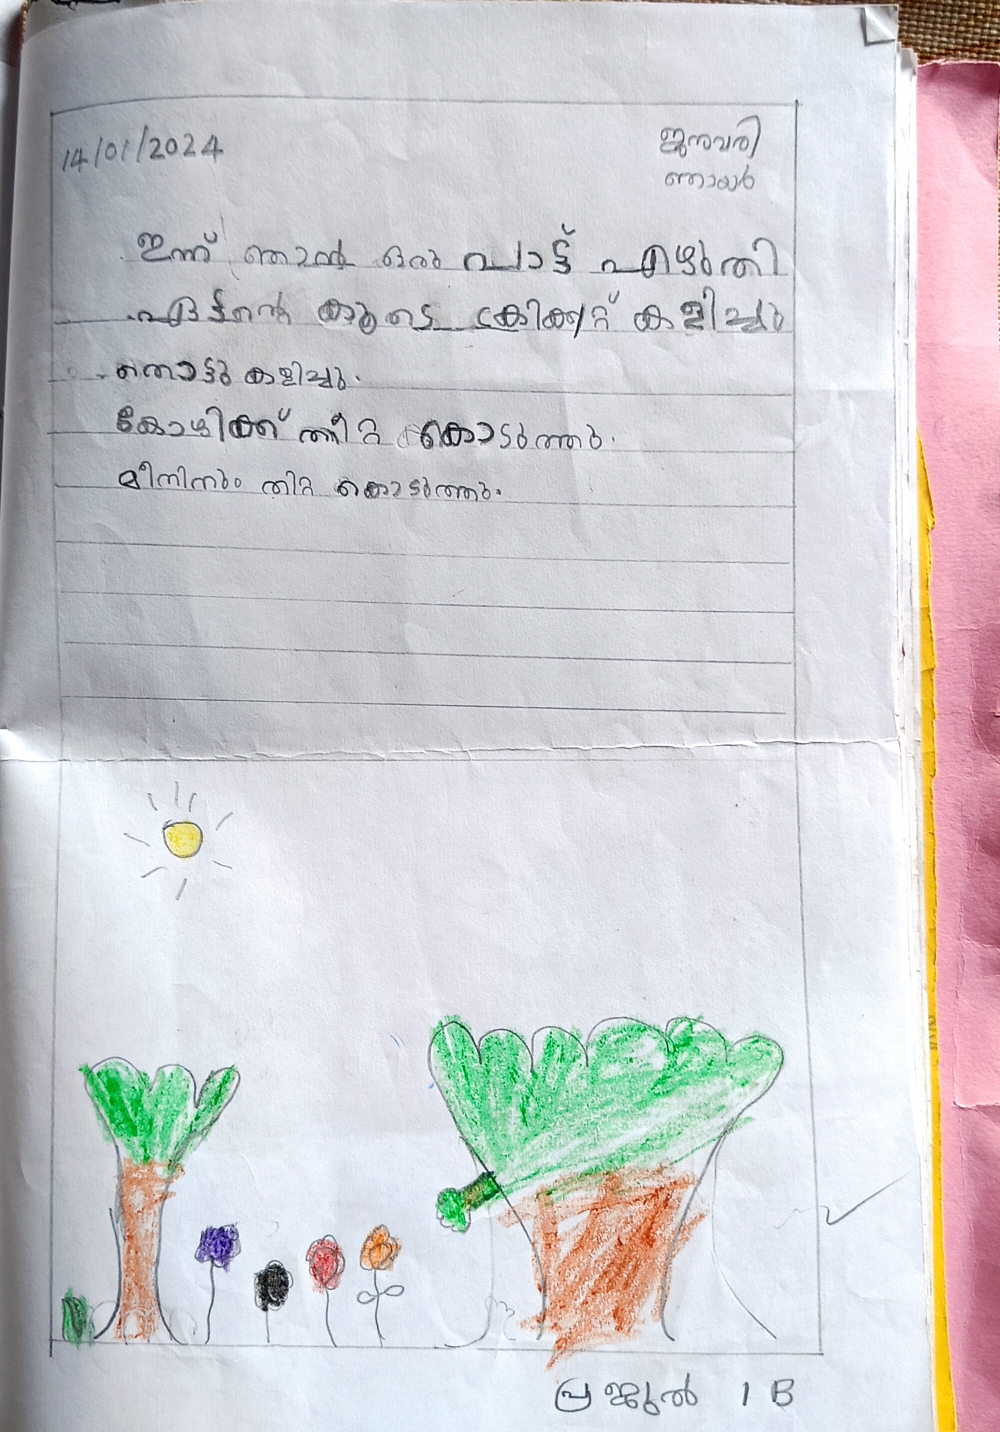 14/01/2024
ജനുവരി
ഞായർ
ഇന്ന് ഞാൻ ഒരു പാട്ട് എഴുതി
ഏട്ടന്റെ കൂടെ ക്രിക്കറ്റ് കളിച്ചു
തൊട്ടു കളിച്ചു.
കോഴിക്ക് തീറ്റ കൊടുത്തു.
മീനിനും തിറ്റ കൊടുത്തു.
പ്രജുൽ 1 B